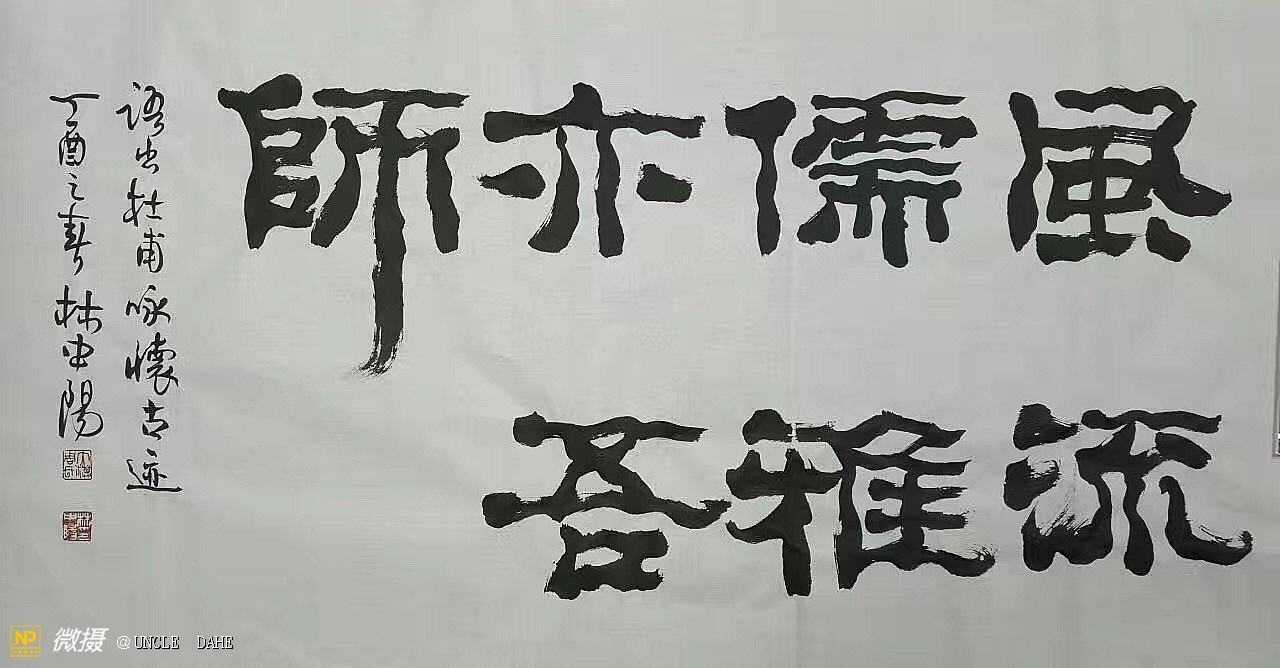 風流
儒雅
亦吾
師
語出杜甫咏懷古迹
丁酉之春 林中陽
NP 微摄 @UNCLE DAHE